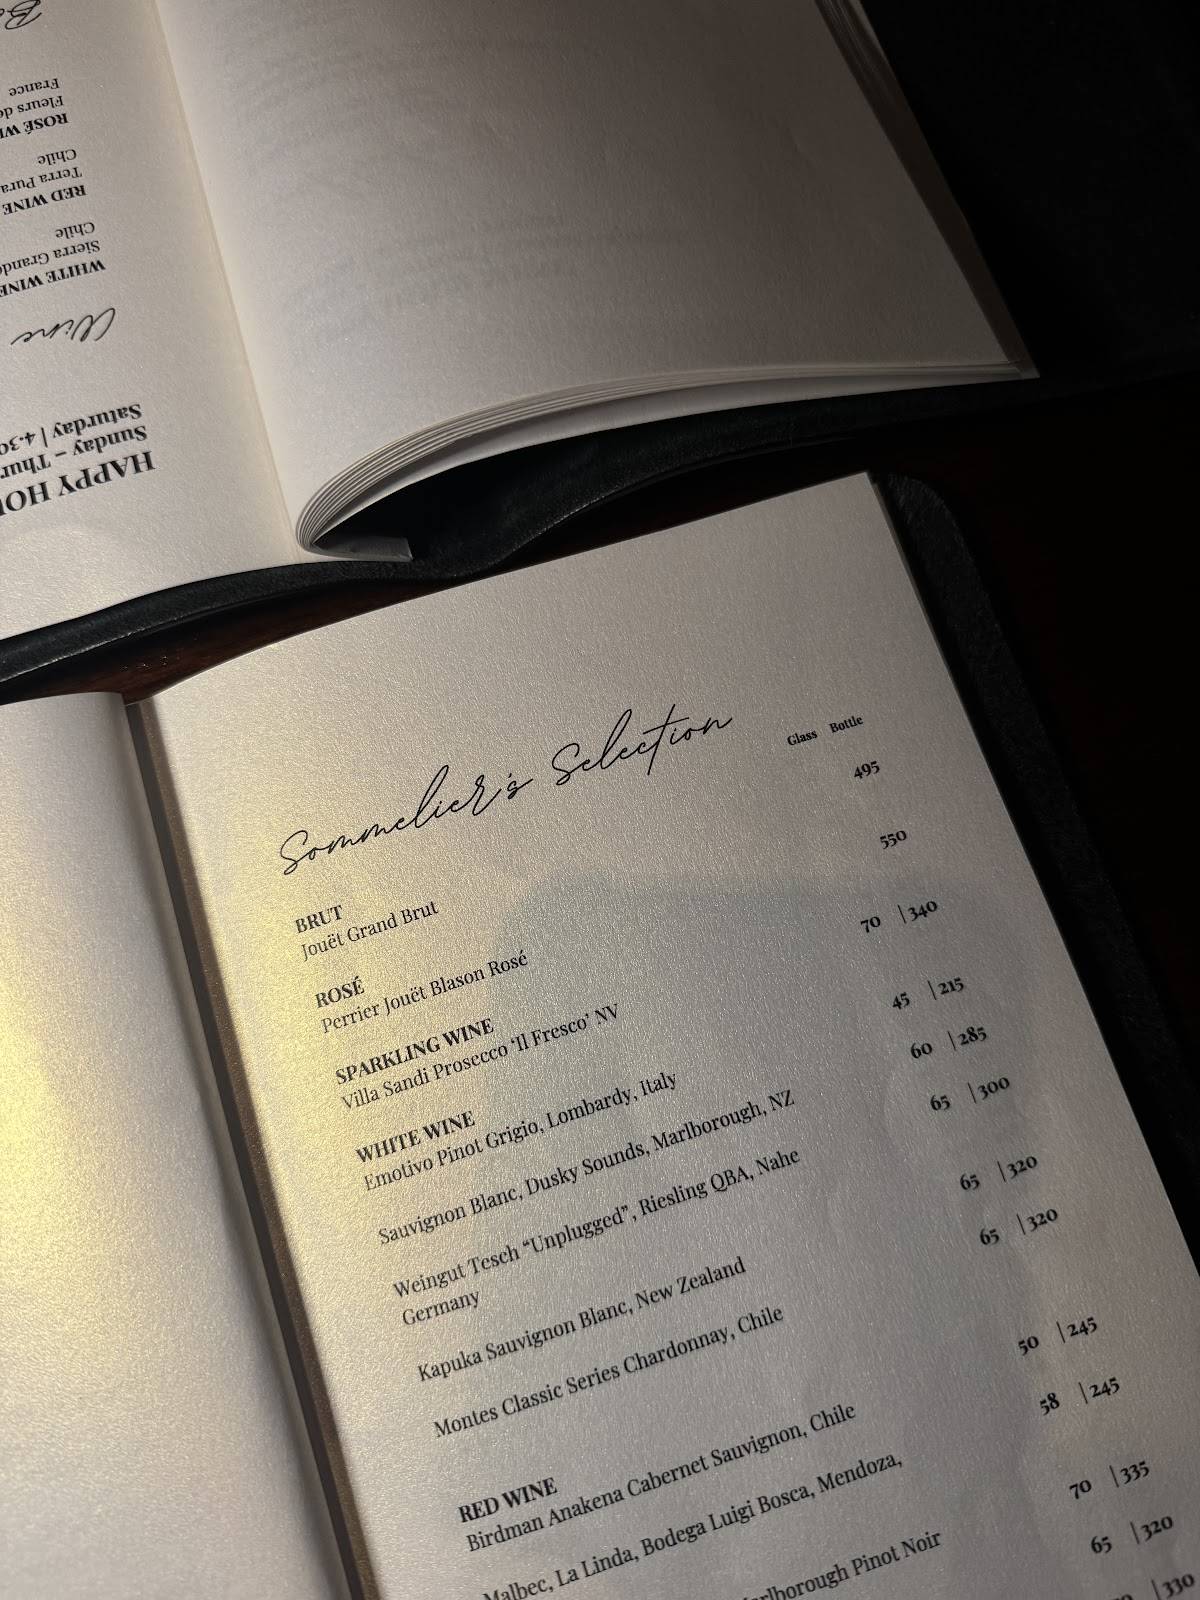 HAPPY HOU
Sunday – Thur
Saturday | 4.30
Wine
WHITE WINE
Sierra Grande
Chile
RED WINE
Terra Pura
Chile
ROSÉ WI
Fleurs de
France
Sommelier's Selection
Glass Bottle
BRUT
Jouët Grand Brut 495
ROSÉ
Perrier Jouët Blason Rosé 550
SPARKLING WINE
Villa Sandi Prosecco ‘Il Fresco’ NV 70 | 340
WHITE WINE
Emotivo Pinot Grigio, Lombardy, Italy 45 | 215
Sauvignon Blanc, Dusky Sounds, Marlborough, NZ 60 | 285
Weingut Tesch “Unplugged”, Riesling QBA, Nahe 65 | 300
Germany
Kapuka Sauvignon Blanc, New Zealand 65 | 320
Montes Classic Series Chardonnay, Chile 65 | 320
RED WINE
Birdman Anakena Cabernet Sauvignon, Chile 50 | 245
Malbec, La Linda, Bodega Luigi Bosca, Mendoza, 58 | 245
arlborough Pinot Noir 70 | 335
65 | 320
| 330